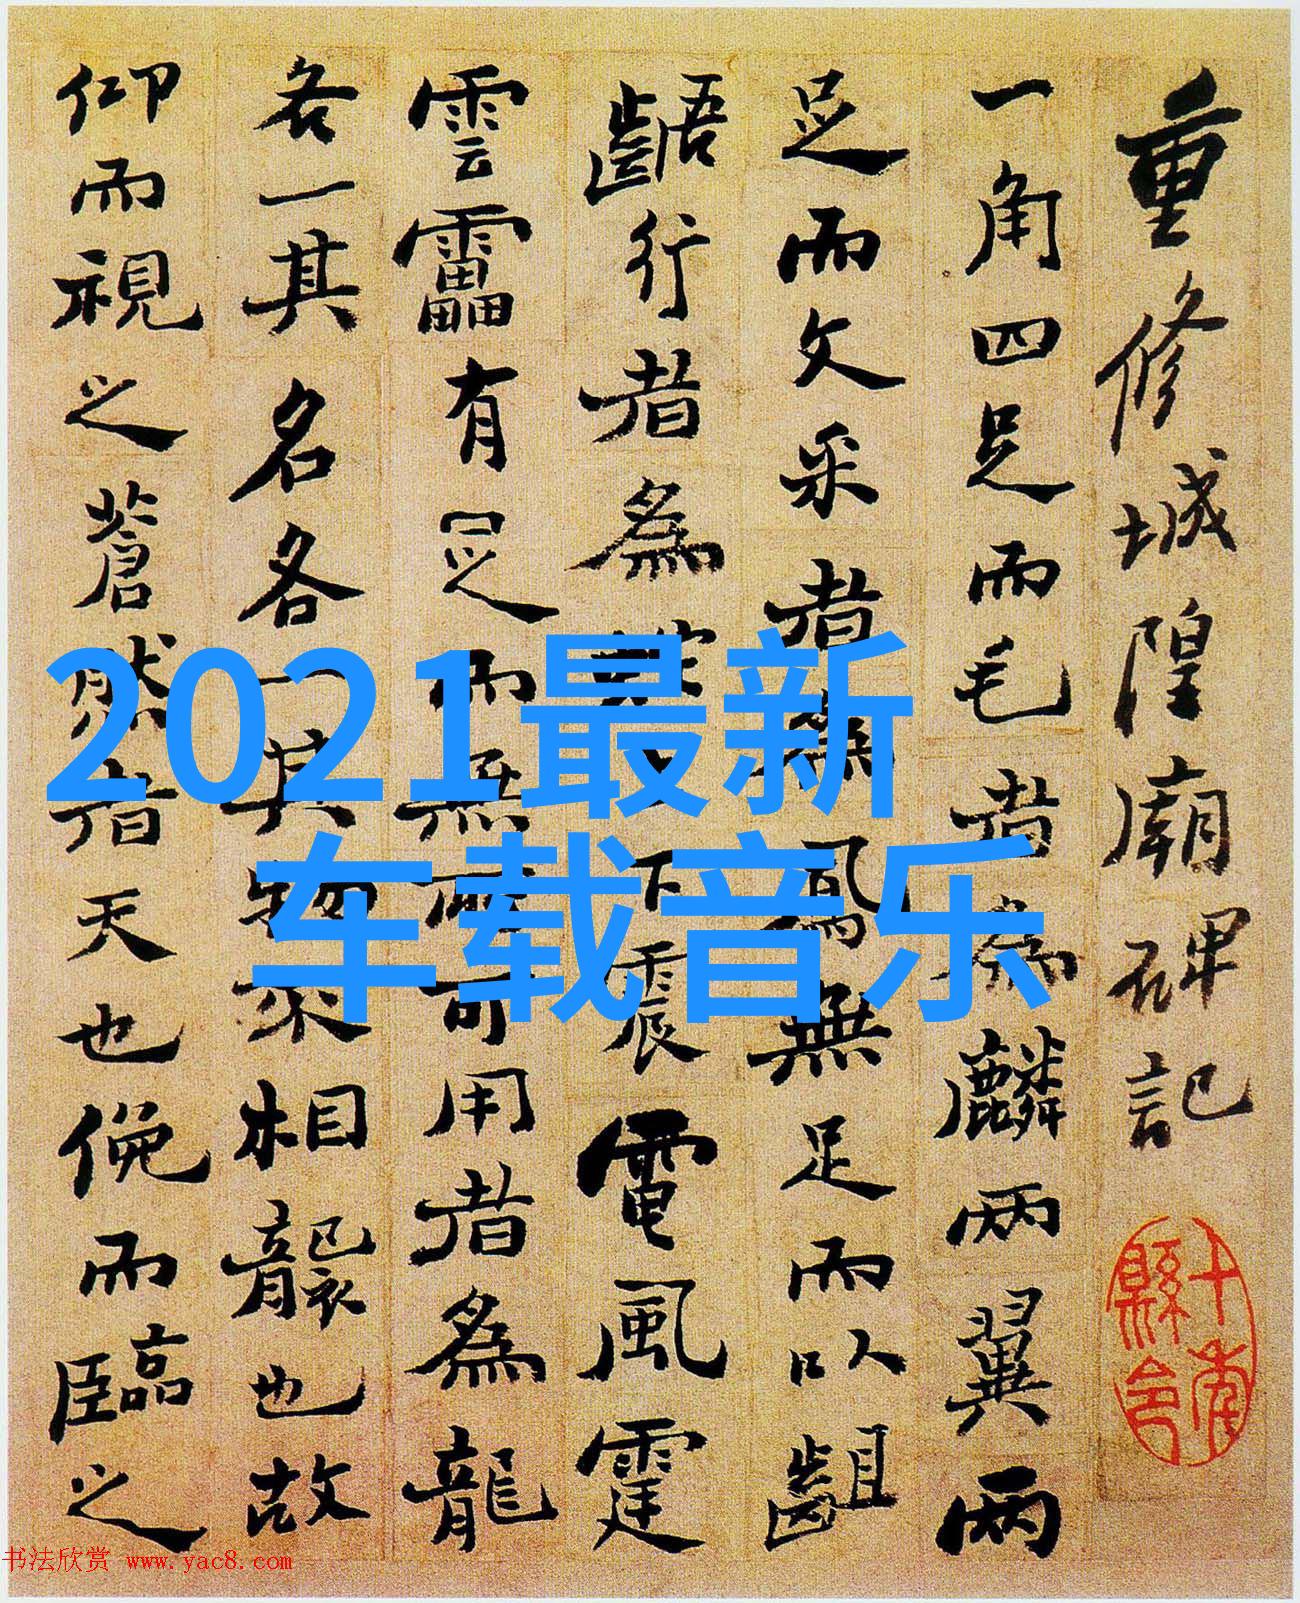 2021最新
车载音乐
重修城隍廟碑記
一角四足而毛者為麟兩翼兩
足而文采者為鳳無足而以齟
齬行者為下震電風霆
雲靁有足而無所可用者為龍
各一其名各一其物相襲也故
仰而視之蒼然者天也俛而臨之
书法欣赏 www.yac8.com